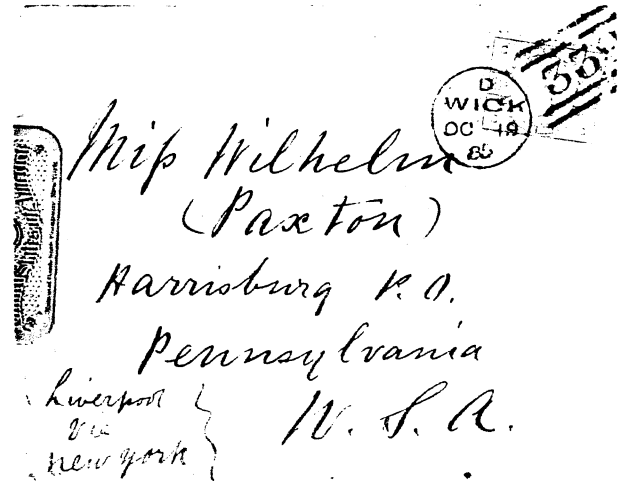 D
WICK
OC 19
85
332
Miss Wilhelm
(Paxton)
Harrisburg P.O.
Pennsylvania
U. S. A.
Liverpool
via
New York